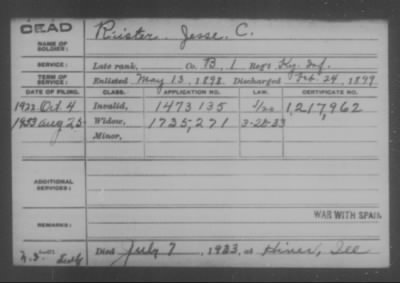 DEAD
NAME OF SOLDIER: Rister, Jesse C.
SERVICE: Late rank, Co. B, 1 Reg't Ky. Inf.
TERM OF SERVICE: Enlisted May 13, 1898. Discharged Feb. 24, 1899
DATE OF FILING. CLASS. APPLICATION NO. LAW. CERTIFICATE NO.
Oct. 4 Invalid, 1473135 1,217,962
1933 Aug 25 Widow, 1735,271 3-20-33
Minor,
ADDITIONAL SERVICES:
WAR WITH SPAIN
REMARKS:
Died July 7, 1933, at Hines, Ill